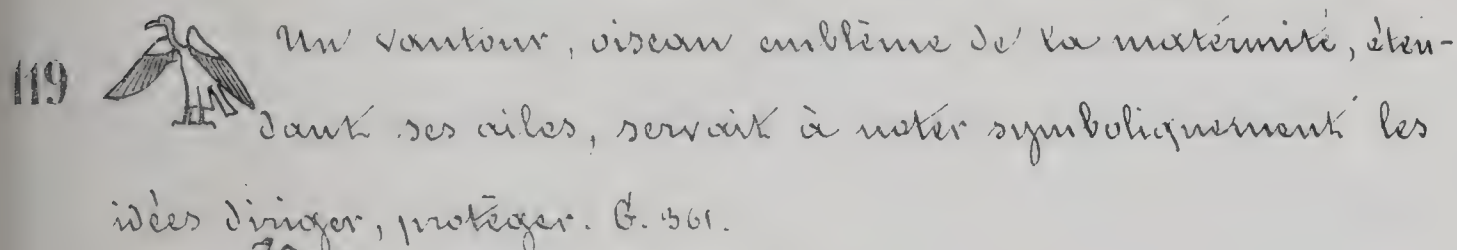 119 Un vautour, oiseau emblème de la maternité, éten-
dant ses ailes, servait à noter symboliquement les
idées diriger, protéger. G. 361.